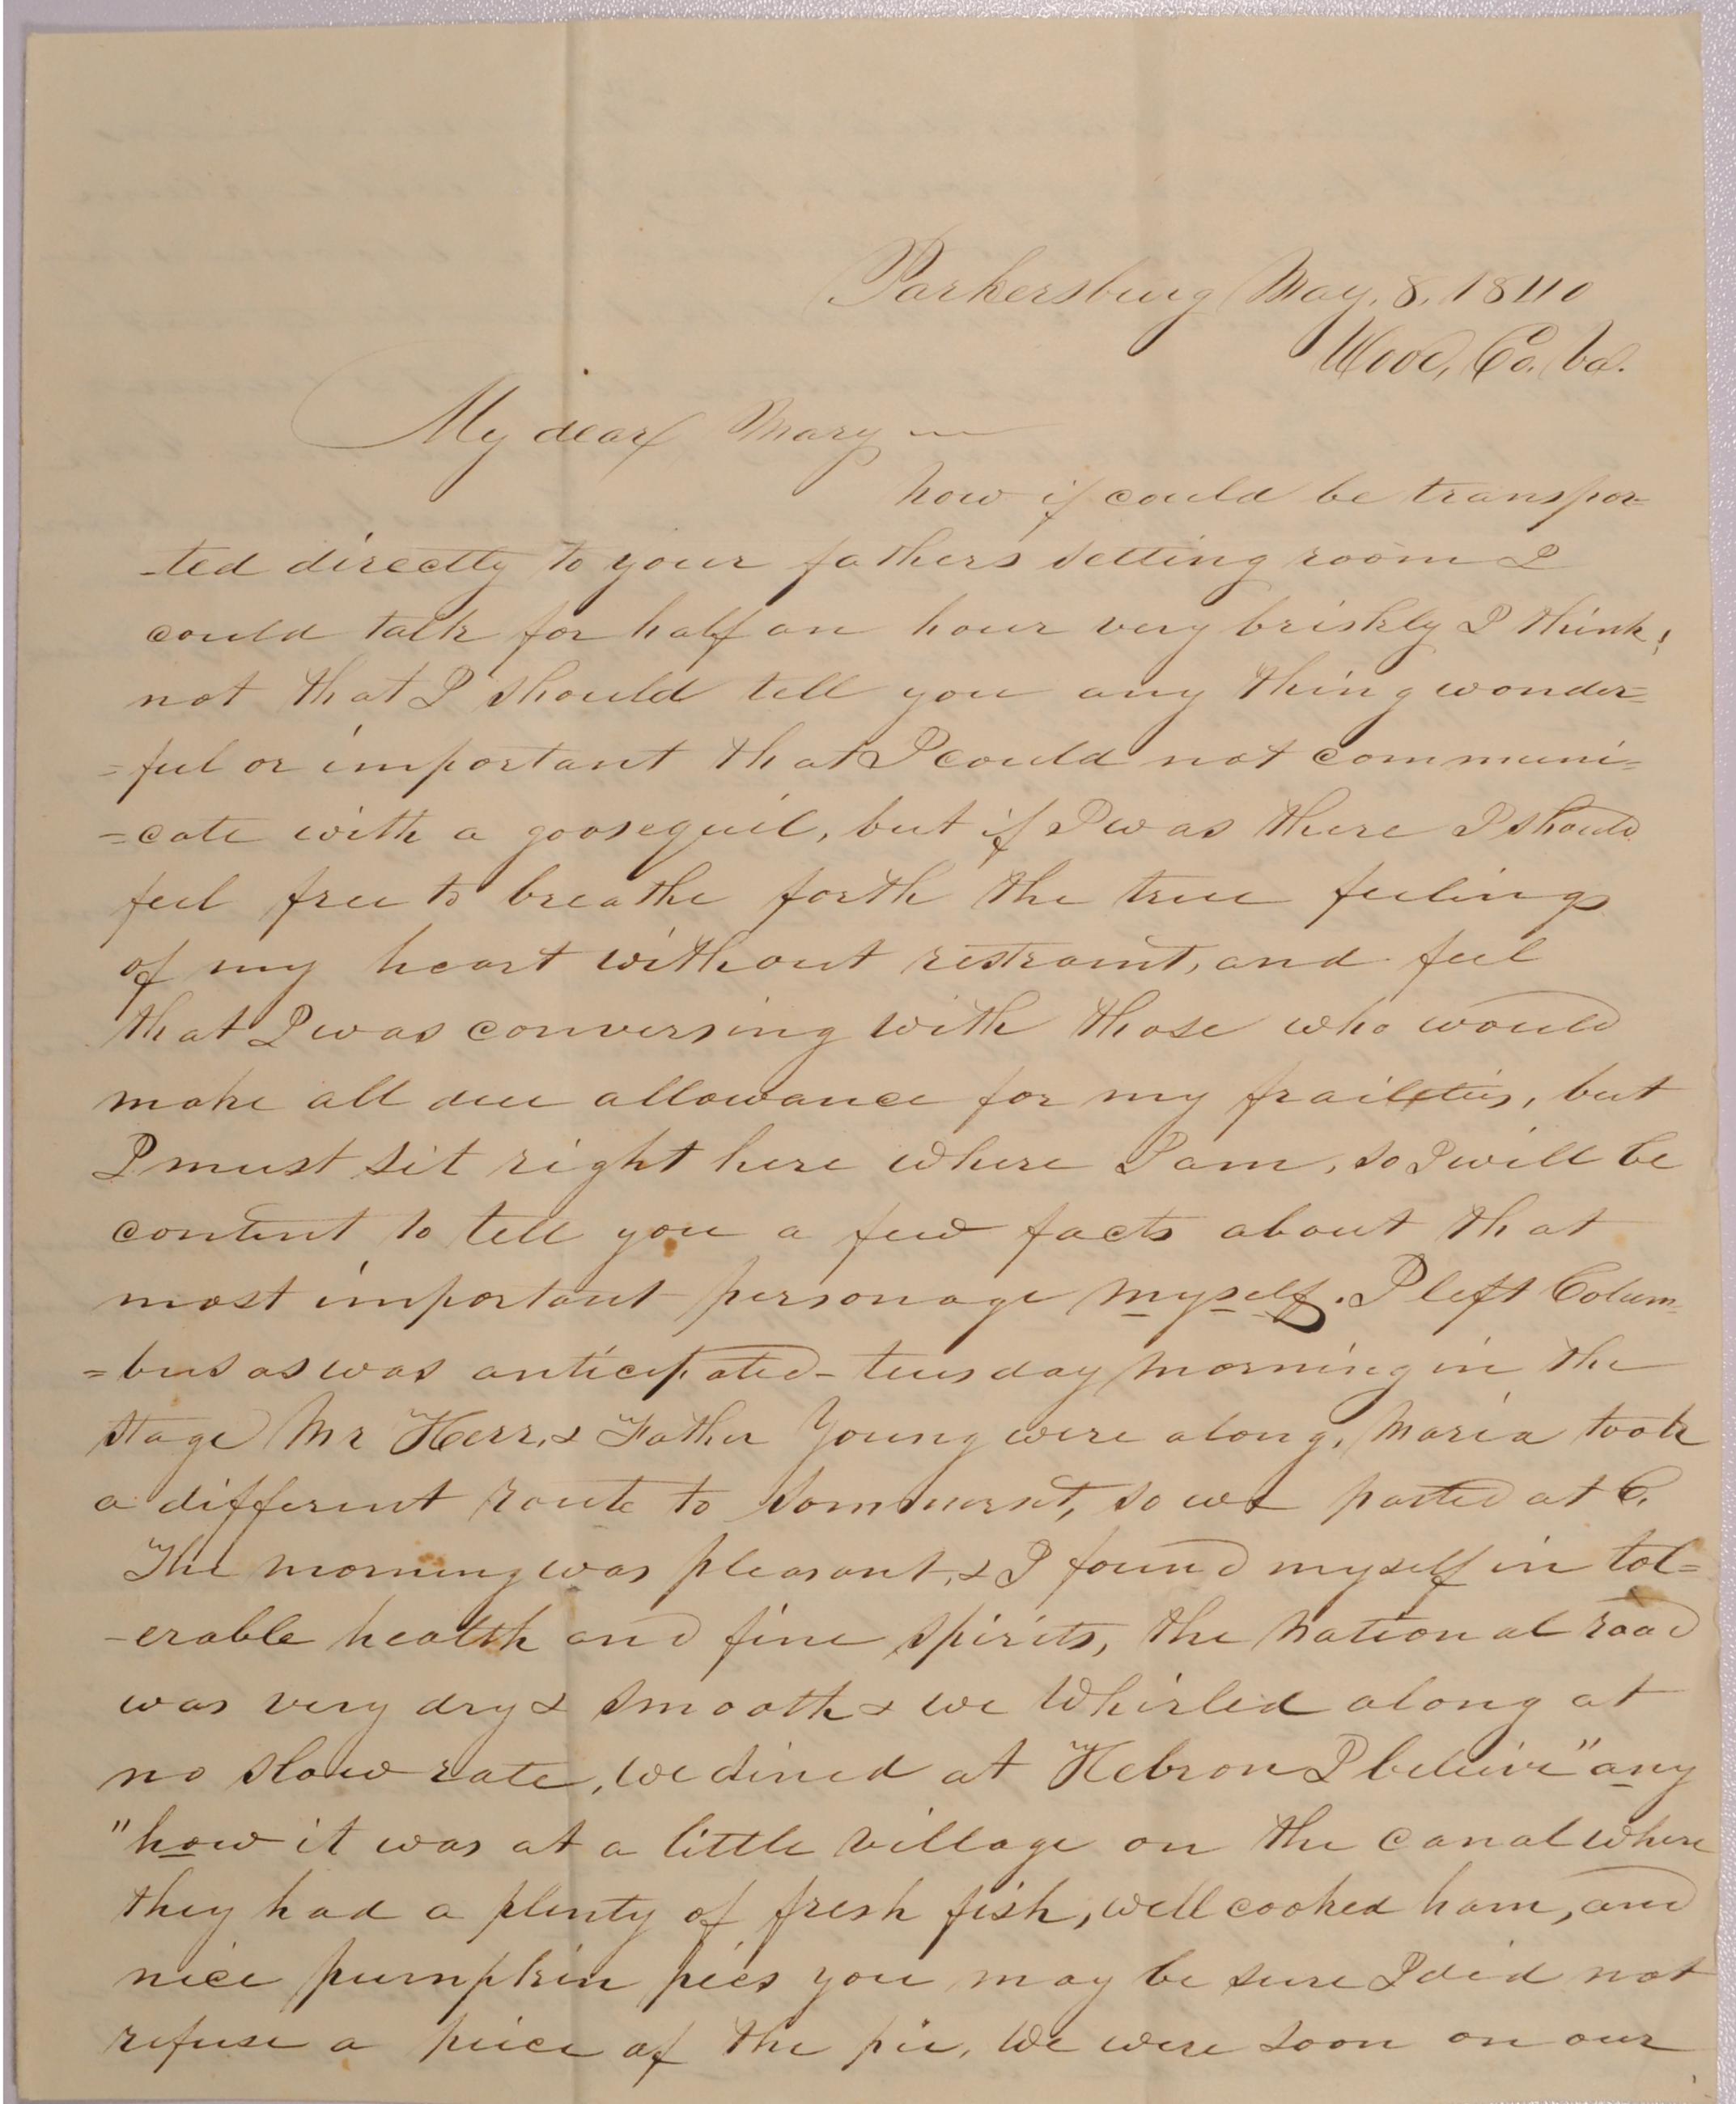 Parkersburg May, 8, 1840
Wood, Co. Va.
My dear Mary —
how if could be transpor-
-ted directly to your fathers setting room I
could talk for half an hour very briskly I think;
not that I should tell you any thing wonder=
=ful or important that I could not communi=
=cate with a goosequil, but if I was there I should
feel free to breathe forth the true feelings
of my heart without restraint, and feel
that I was conversing with those who would
make all due allowance for my frailties, but
I must sit right here where I am, so I will be
content to tell you a few facts about that
most important personage myself. I left Colum=
=bus as was anticipated - tuesday morning in the
stage Mr Herr, & Father Young were along, Maria took
a different route to Sommerset, so we parted at C.
The morning was pleasant, & I found myself in tol=
-erable health and fine spirits, the National road
was very dry & smooth & we whirled along at
no slow rate, we dined at Hebron I believe "any
"how it was at a little village on the canal where
they had a plenty of fresh fish, well cooked ham, and
nice pumpkin pies you may be sure I did not
refuse a piece of the pie, We were soon on our